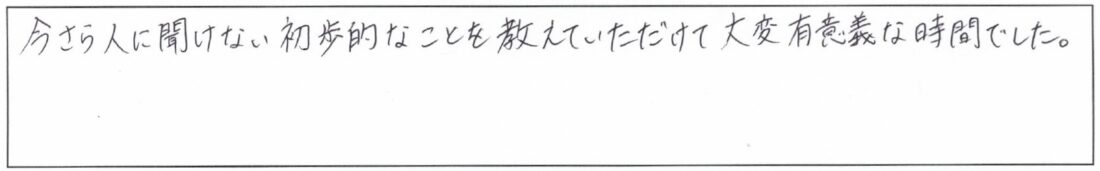 今さら人に聞けない初歩的なことを教えていただけて大変有意義な時間でした。